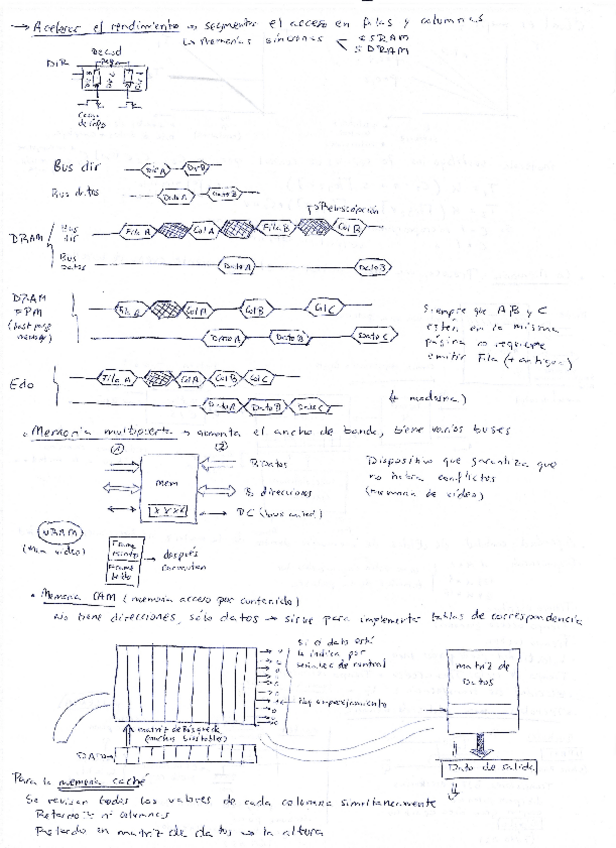 → Acelerar el rendimiento → segmentar el acceso en filas y columnas
↳ Memorias síncronas
SRAM
SDRAM
DIR
Bus dir DirA DirB
Bus datos Dato A Dato B
Precarga
DRAM Bus dir Fila A Col A Fila B Col B
Bus Datos Dato A Dato B
DRAM FPM Fila A Col A Col B Col C
Dato A Dato B Dato C
Siempre que A, B y C
estén en la misma
página no requiere
emitir Fila (+ antigua)
Edo Fila A Col A Col B Col C
Dato A Dato B Dato C
(+ moderna)
• Memoria multipuerto → aumenta el ancho de banda, tiene varios buses
① ②
mem
B. Datos
B. direcciones
Dispositivo que garantiza que
no habrá conflictos
(memoria de vídeo)
VRAM
después
conmutan
• Memoria CAM (memoria acceso por contenido)
No tiene direcciones, sólo datos → sirve para implementar tablas de correspondencia
Si el dato está
lo indica por
señales de control
matriz de
Datos
matriz de búsqueda
DATO
Dato de salida
Para la memoria caché
Se revisan todos los valores de cada columna simultáneamente
Retardo: nº columnas
Retardo en matriz de datos → la altura